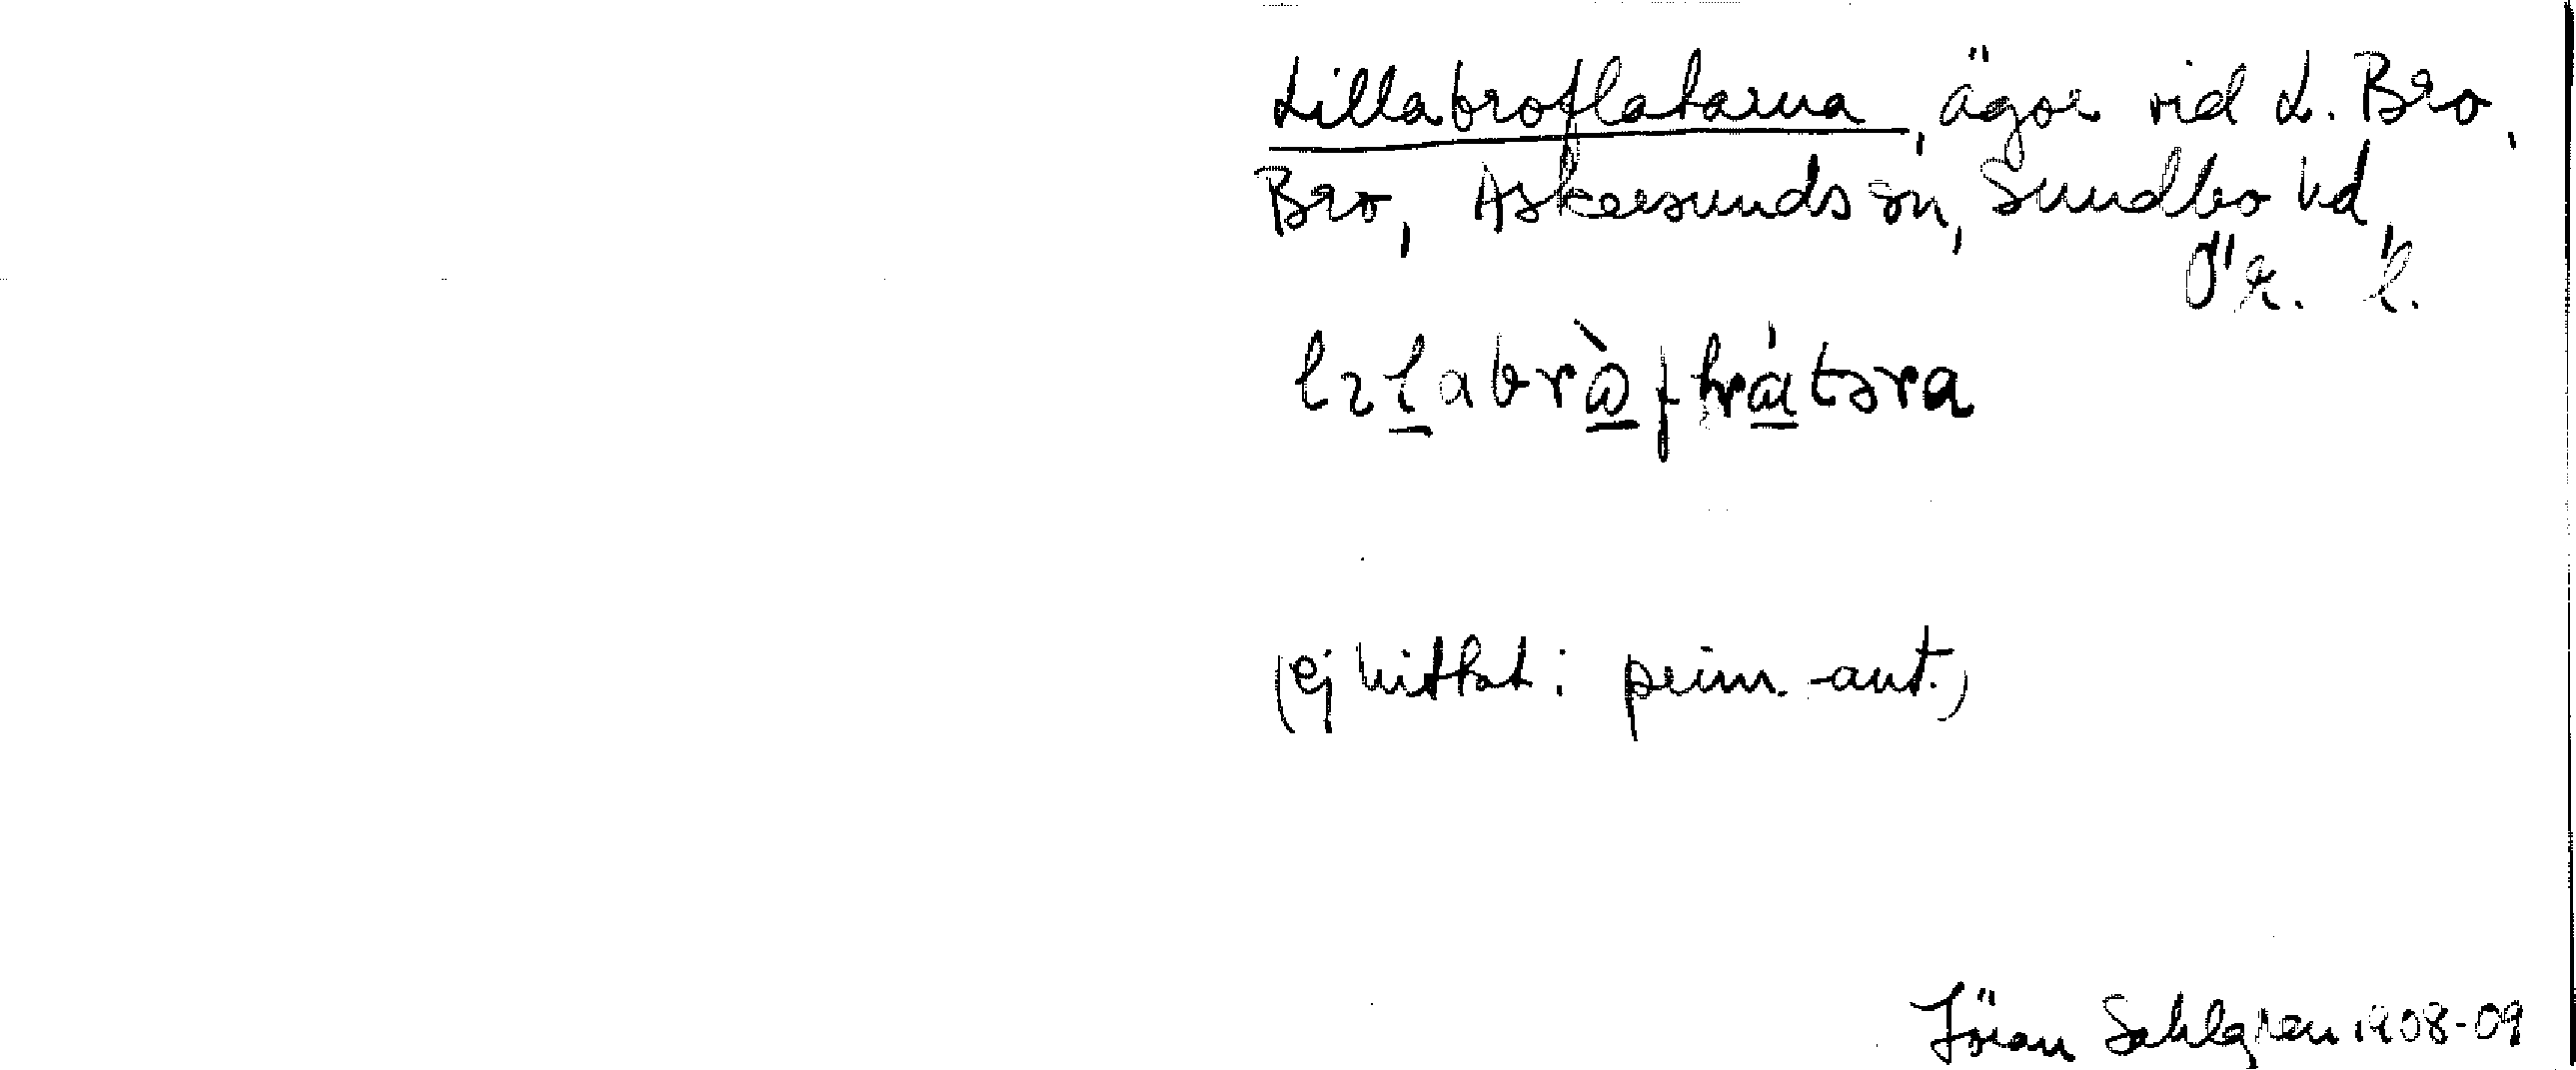 Lillabroflatarna, ägor vid L. Bro,
Bro, Askersunds sn, Sundbo hd,
Ör. l.
(ej hittat i prim.-ant.)
Jöran Sahlgren 1908-09